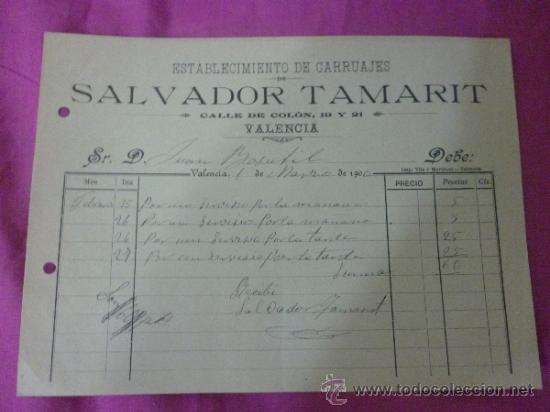 ESTABLECIMIENTO DE CARRUAJES
DE
SALVADOR TAMARIT
CALLE DE COLÓN, 19 Y 21
VALENCIA
Sr. D. Juan
Debe:
Valencia 1 de Marzo de 190
Imp. Valencia
Mes Dia PRECIO Pesetas Cts.
25 Por un servisio por la mañana 5
26 Por un servisio por la mañana 5
26 Por un servisio por la tarde 25
27 Por un servisio por la tarde 25
Suma
Recibi
Salvador Tamarit
todocoleccion
www.todocoleccion.net